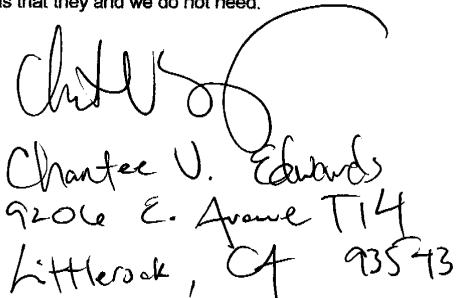 s that they and we do not need.
Chantee V. Edwards
9206 E. Avenue T14
Littlerock, CA 93543